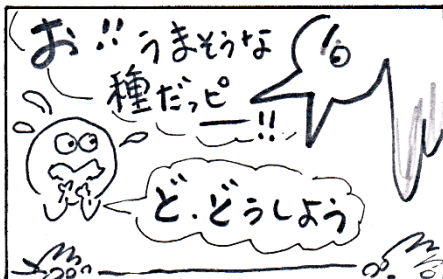 お!!うまそうな
種だっピ
ー!!
ど、どうしよう